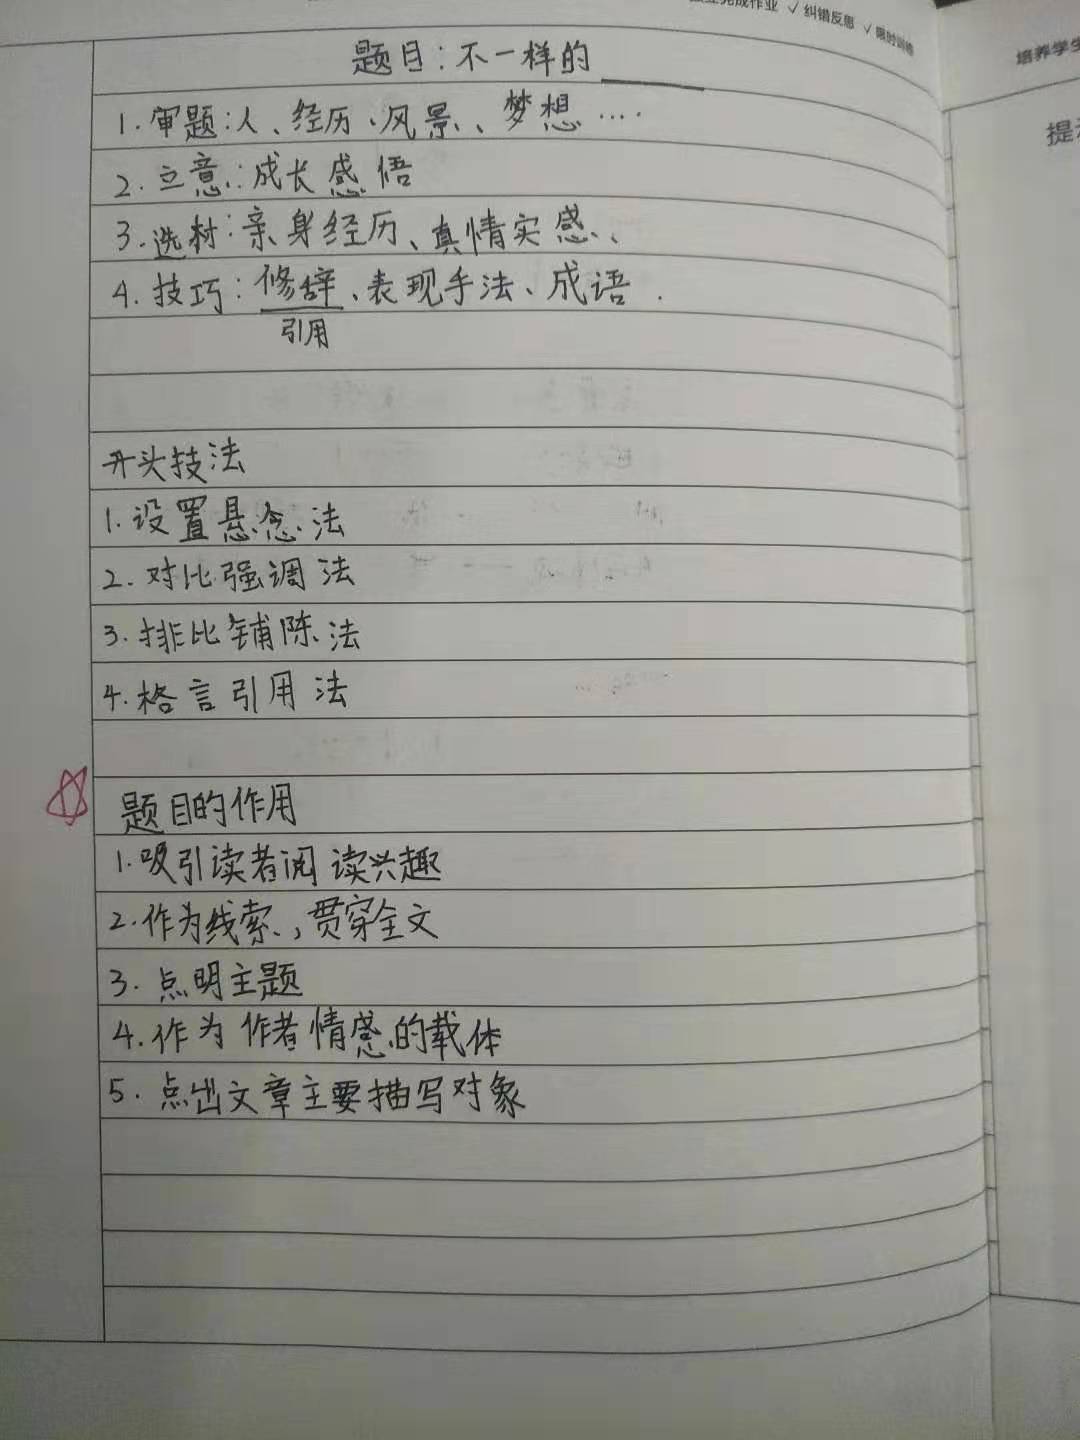 完成作业 ✓ 纠错反思 ✓ 限时训练
培养学生
题目：不一样的______
1. 审题：人、经历、风景、梦想....
2. 立意：成长感悟
3. 选材：亲身经历、真情实感、
4. 技巧：修辞、表现手法、成语.
引用
开头技法
1. 设置悬念法
2. 对比强调法
3. 排比铺陈法
4. 格言引用法
题目的作用
1. 吸引读者阅读兴趣
2. 作为线索，贯穿全文
3. 点明主题
4. 作为作者情感的载体
5. 点出文章主要描写对象